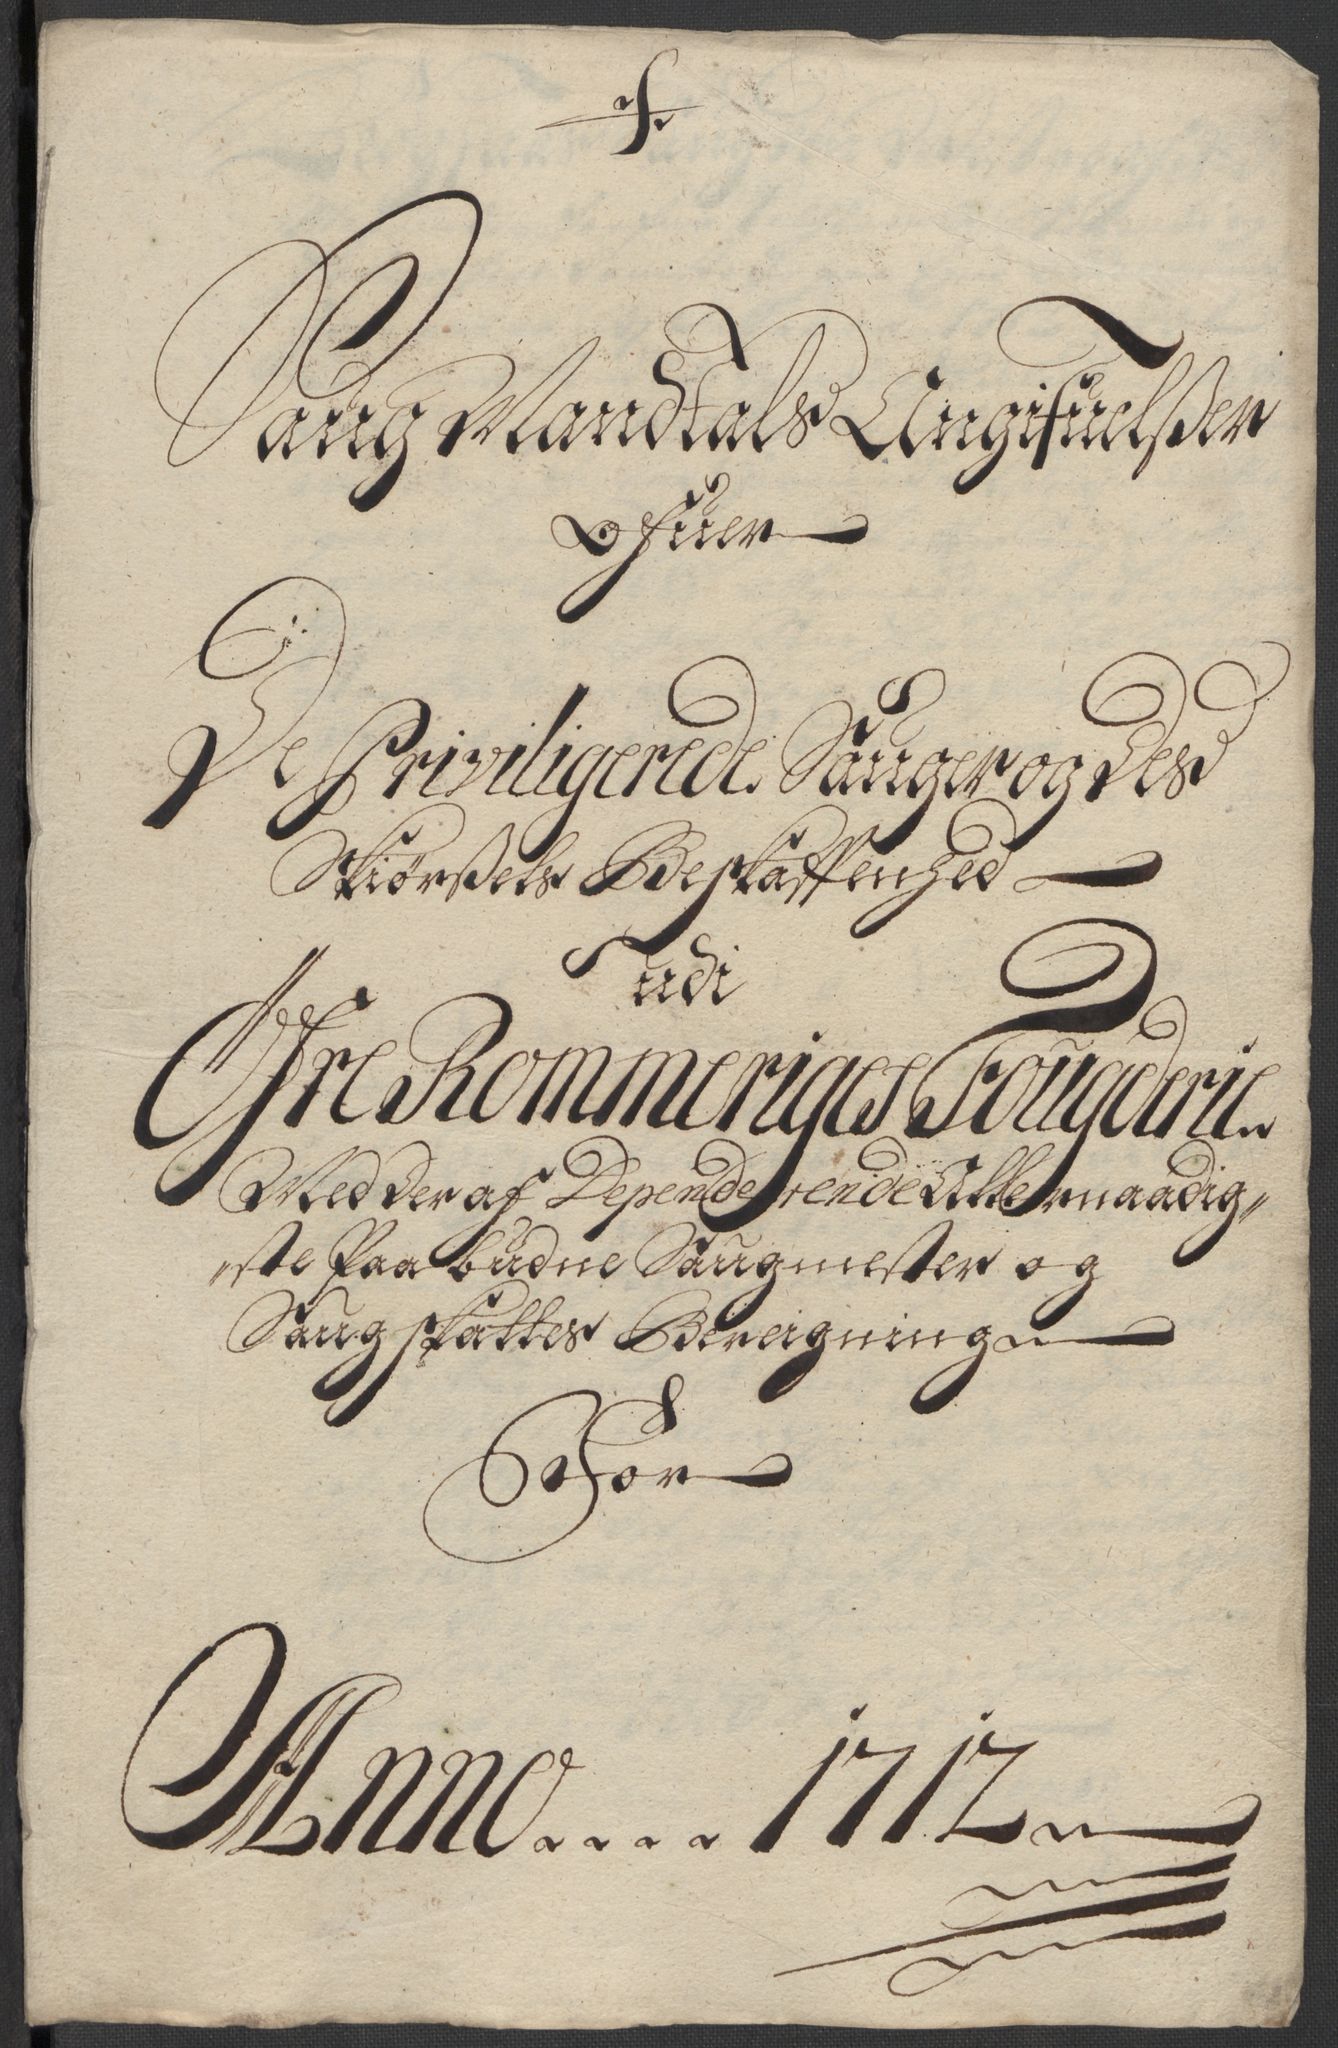 f.
Saug Mandtals Angifuelßer
Ofuer
De Priviligerede Sauger og des
Skiørßels Beskaffenhed
udi
Øfre Rommeriges Fougderie
Med der af Dependerende Allernaadig„
„ste Paabudne Saugmester og
Saugskattes Bereigning
For
Anno.... 1712